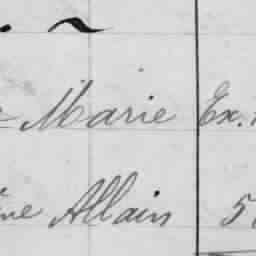 Marie Ex.
Allain 5